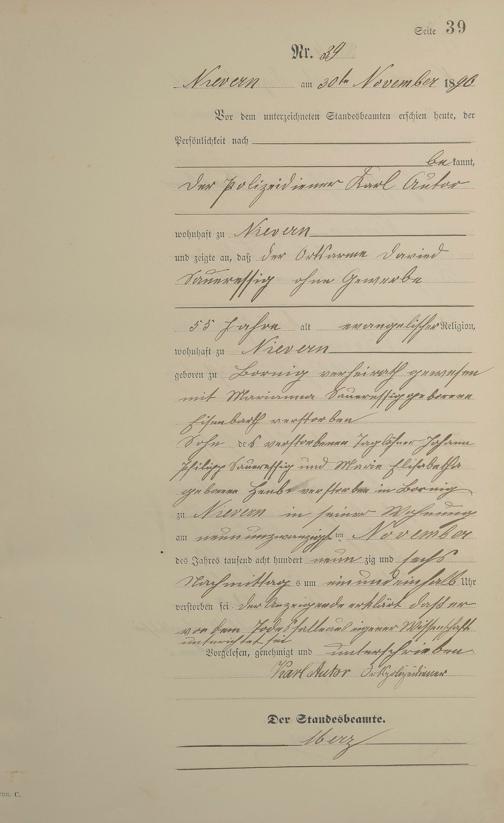 Seite 39
Nr. 39
Nievern am 30ten November 1896
Vor dem unterzeichneten Standesbeamten erschien heute, der
Persönlichkeit nach
bekannt,
der Polizeidiener Karl Autor
wohnhaft zu Nievern
und zeigte an, daß der Ortsarme David
Saueressig ohne Gewerbe
55 Jahre alt evangelischer Religion,
wohnhaft zu Nievern
geboren zu Bornig verheirath gewesen
mit Marianna Saueressig geborene
Eisenbarth verstorben
Sohn des verstorbenen Taglöhner Johann
Philipp Saueressig und Marie Elisabetha
geborene verstorben in Bornig
zu Nievern in seiner Wohnung
am neunundzwanzigsten November
des Jahres tausend acht hundert neunzig und sechs
Nachmittags um ein und einhalb Uhr
verstorben sei der Anzeigende erklärt daß er
von dem Todesfalle aus eigener Wissenschaft
unterrichtet sei
Vorgelesen, genehmigt und unterschrieben
Karl Autor Ortspolizeidiener
Der Standesbeamte.
Merz
C.